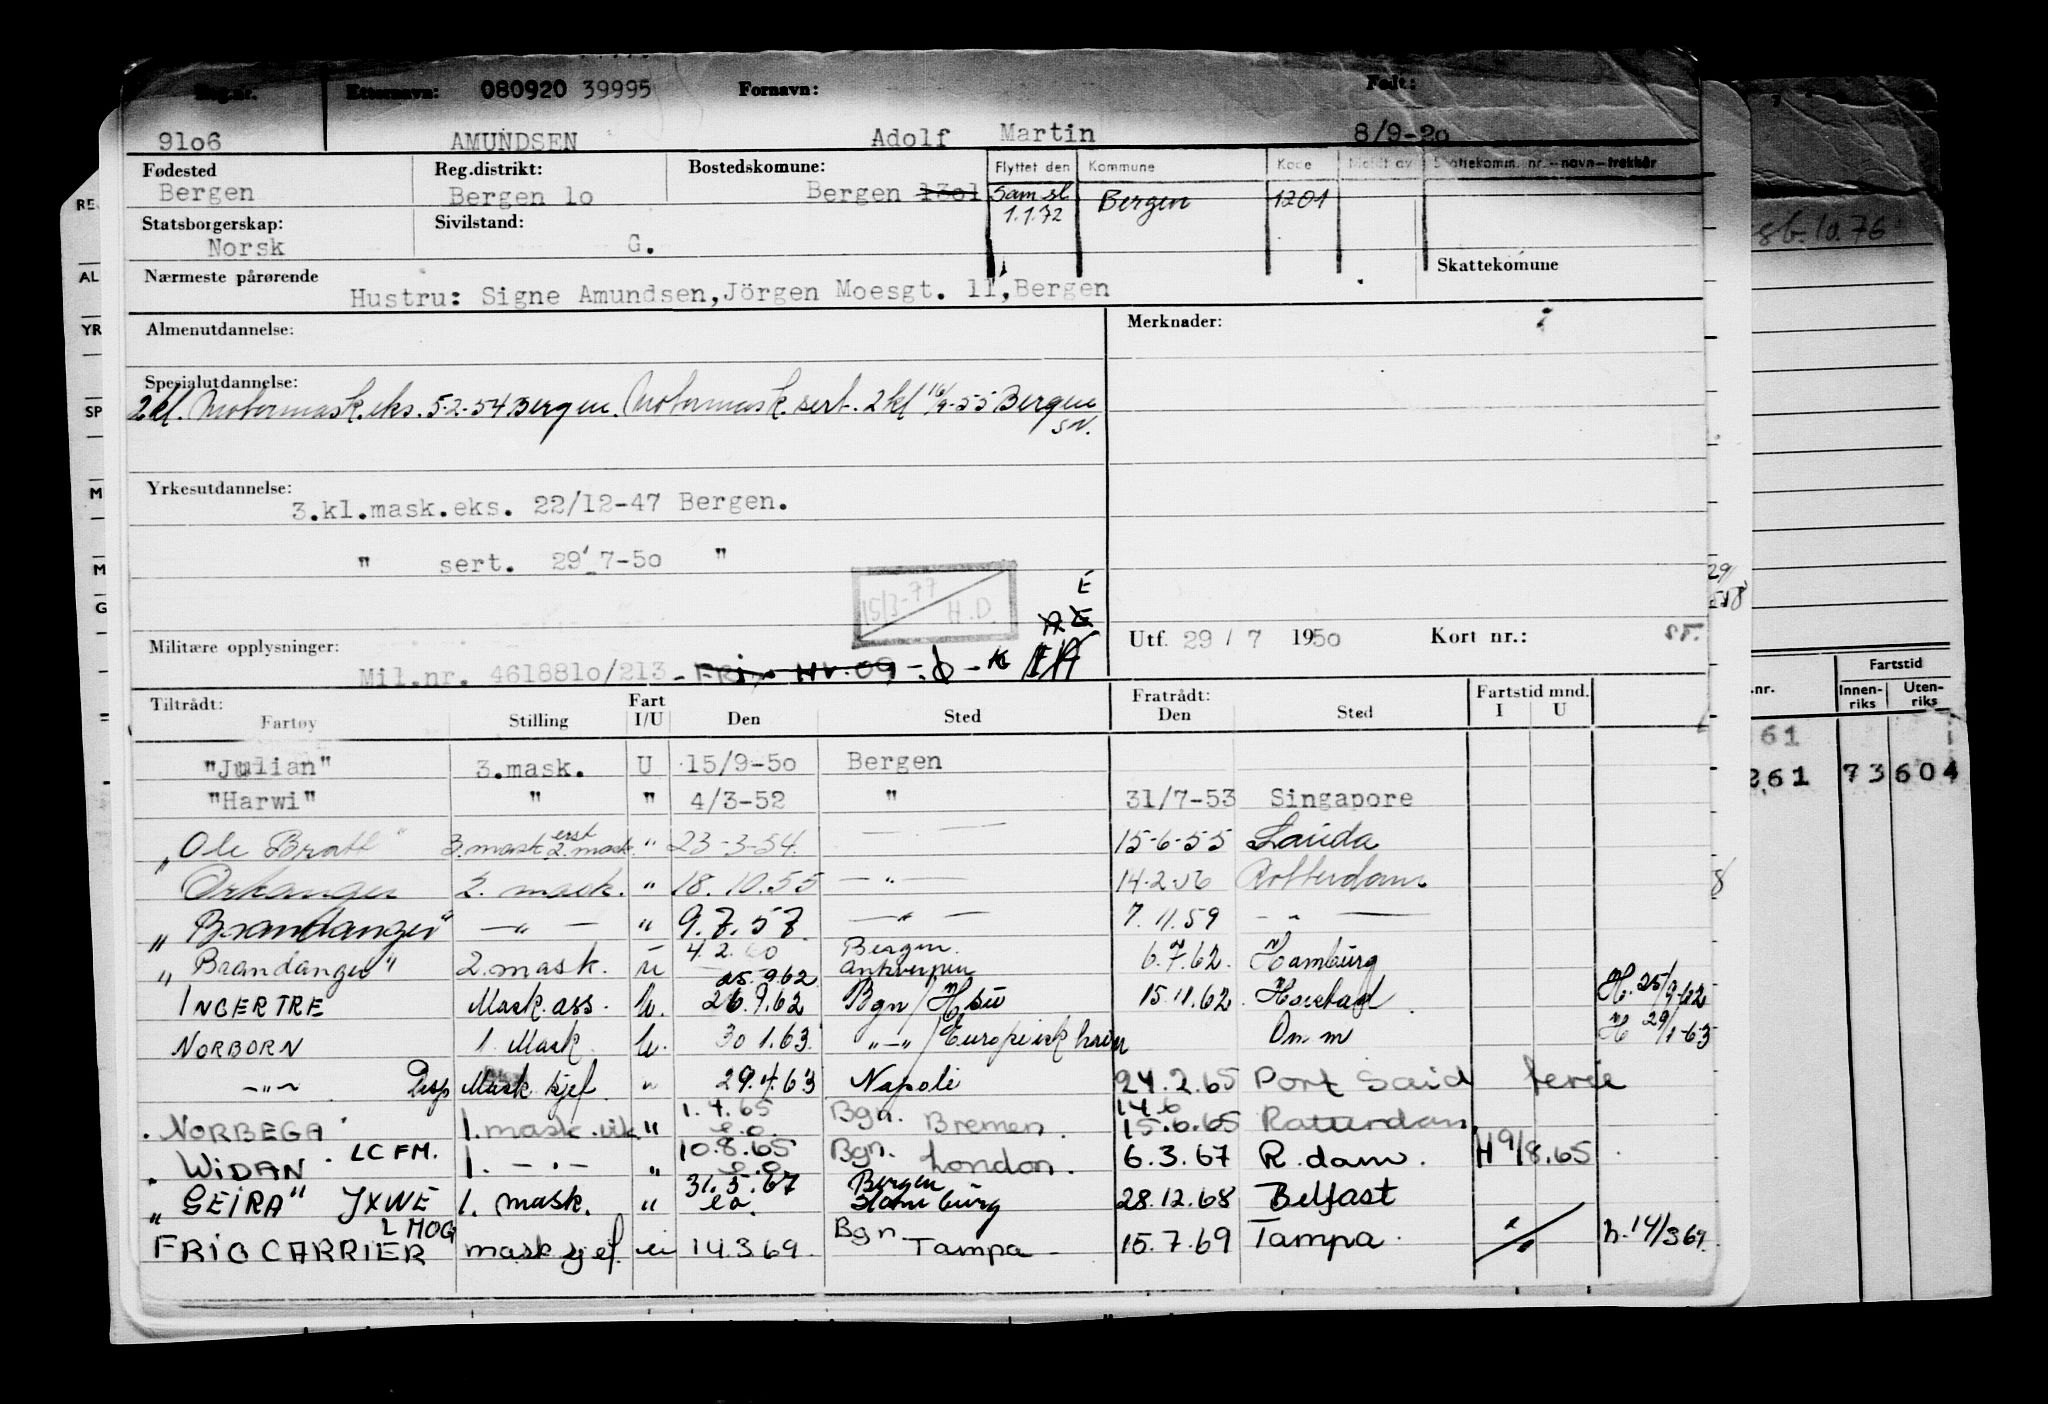 Reg.nr. Etternavn: 080920 39995 Fornavn: Født:
9106 AMUNDSEN Adolf Martin 8/9-20
Fødested Reg.distrikt: Bostedskomune: Flyttet den Kommune Kode Meldt av Skattekomm. nr.-navn-trekkår
Bergen Bergen 1o Bergen 1301 Saml 1.1.72 Bergen 1201
Statsborgerskap: Sivilstand:
Norsk G.
Nærmeste pårørende Skattekomune
Hustru: Signe Amundsen, Jörgen Moesgt. 11, Bergen
Almenutdannelse: Merknader:
Spesialutdannelse:
2kl. Motormask.eks. 5-2-54 Bergen. Motormask.sert. 2kl 16/9-55 Bergen
SN.
Yrkesutdannelse:
3.kl.mask.eks. 22/12-47 Bergen.
" sert. 29/7-5o "
15/3-77 H.D.
E
Militære opplysninger: Utf. 29 / 7 1950 Kort nr.: sr.
Mil.nr. 461881o/213
Tiltrådt: Fart Fratrådt: Fartstid mnd.
Fartøy Stilling I/U Den Sted Den Sted I U
"Julian" 3.mask. U 15/9-5o Bergen
"Harwi" " " 4/3-52 " 31/7-53 Singapore
"Ole Bratt" 3.mask erst 2.mask. " 23-3-54. — — 15-6-55 Lauda
Orkanger 2. mask. " 18.10.55 —"— 14.2.56 Rotterdam
"Brandanger" —"— " 9.7.57 —"— 7.11.59 —"—
"Brandanger" 2.mask. u 4.2.60 Bergen. 6.7.62. Hamburg
25.9.62 Antwerpen
INGERTRE Mask.ass. u. 26.9.62 Bgn/ 15.11.62. H. 25/9-62
NORBORN 1. Mask. u. 30 1.63. "-"/Europeisk havn Om m H 29/1-63
-"- Disp Mask kjef. " 29.4.63 Napoli 24.2.65 Port Said ferie
NORBEGA 1. mask.vik " 1.4.65 e.o. Bgn. Bremen. 14.6 15.6.65 Rotterdam
WIDAN. LCFM. 1. -"- " 10.8.65 e.o. Bgn. London. 6.3.67 R.dam. H 9/8.65
"GEIRA" JXWE 1. mask. " 31.5.67 eo. Bergen Hamburg 28.12.68 Belfast
LMOG
FRIGCARRIER masksjef. u 14.3.69. Bgn Tampa 15.7.69 Tampa. h.14/3 69.
RE
AL
YR
SP
M
M
G
.10.76
Fartstid
.nr. Innen-riks Uten-riks
61
261 73 604